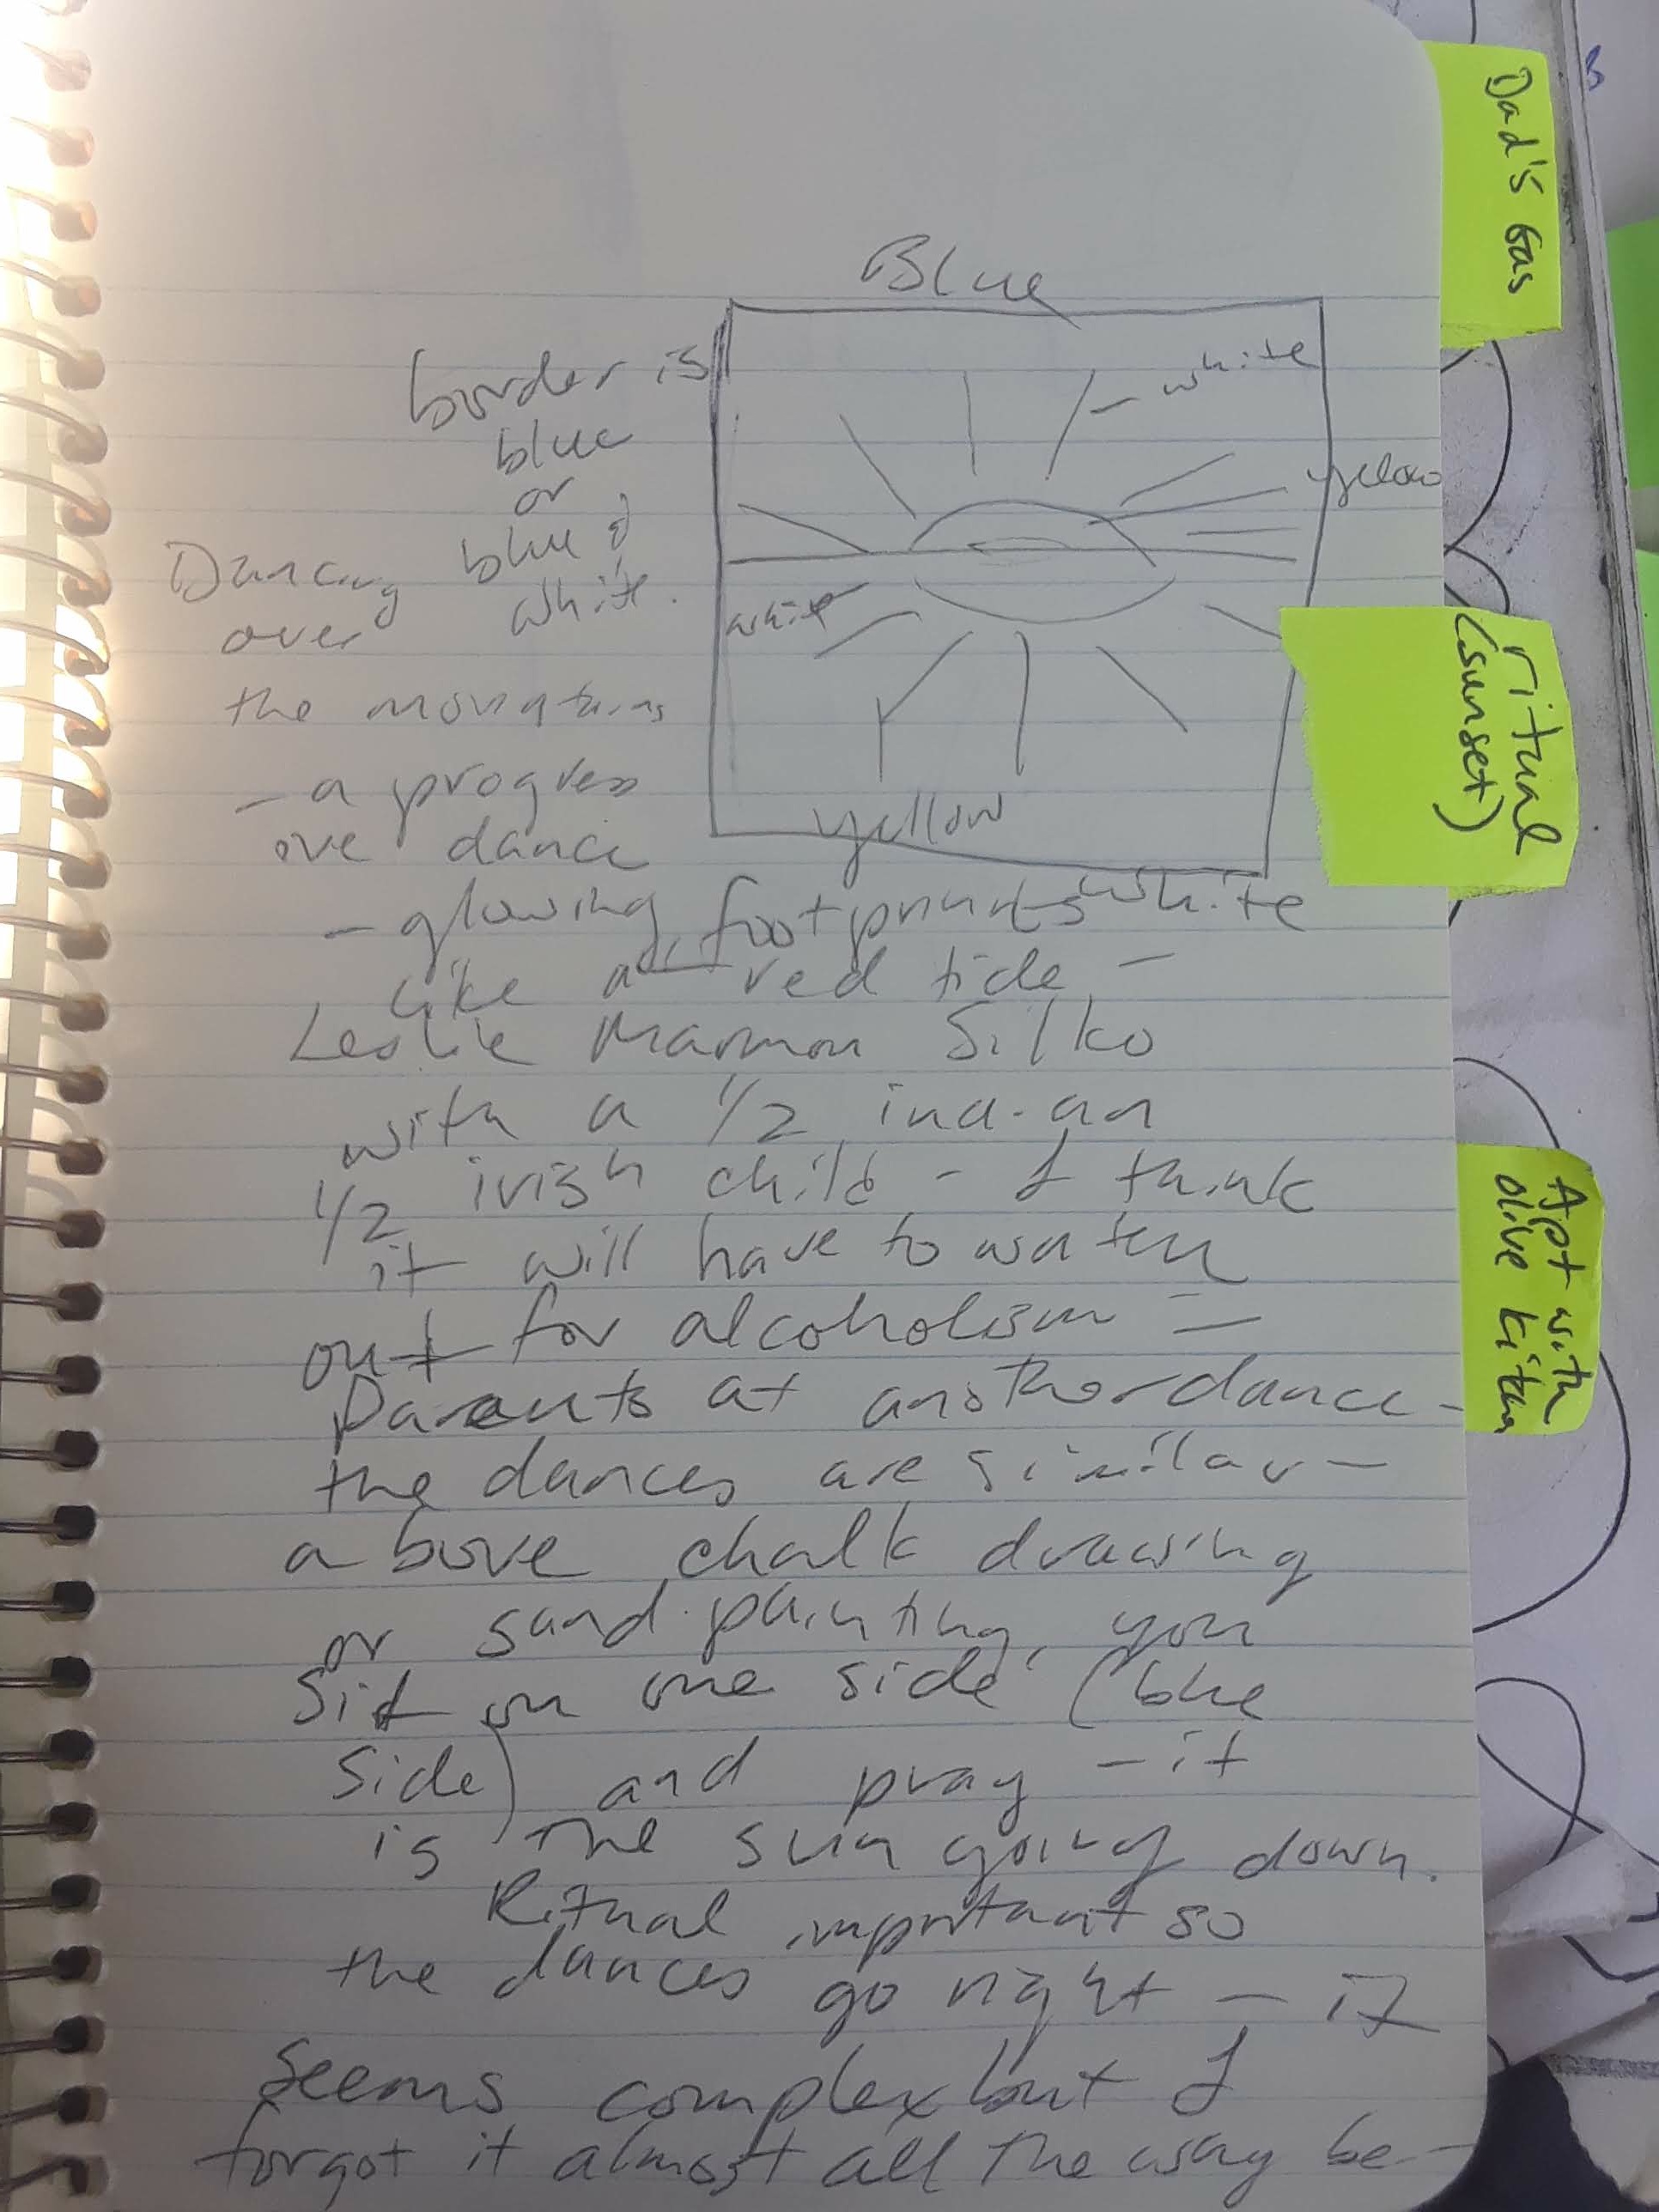 Blue
border is
blue
or
blue &
white.
white
yellow
white
yellow
white
Dancing
over
the mountains
- a progress
ive dance
- glowing footprints
like a red tide -
Leslie Marmon Silko
with a 1/2 indian
1/2 irish child - I think
it will have to watch
out for alcoholism -
Parents at another dance -
the dances are similar -
above chalk drawing
or sand painting, you
sit on one side (blue
side) and pray - it
is the sun going down.
Ritual important so
the dances go right - it
seems complex but I
forgot it almost all the way be-
Dad's Gas
ritual
(sunset)
Apt with
olive